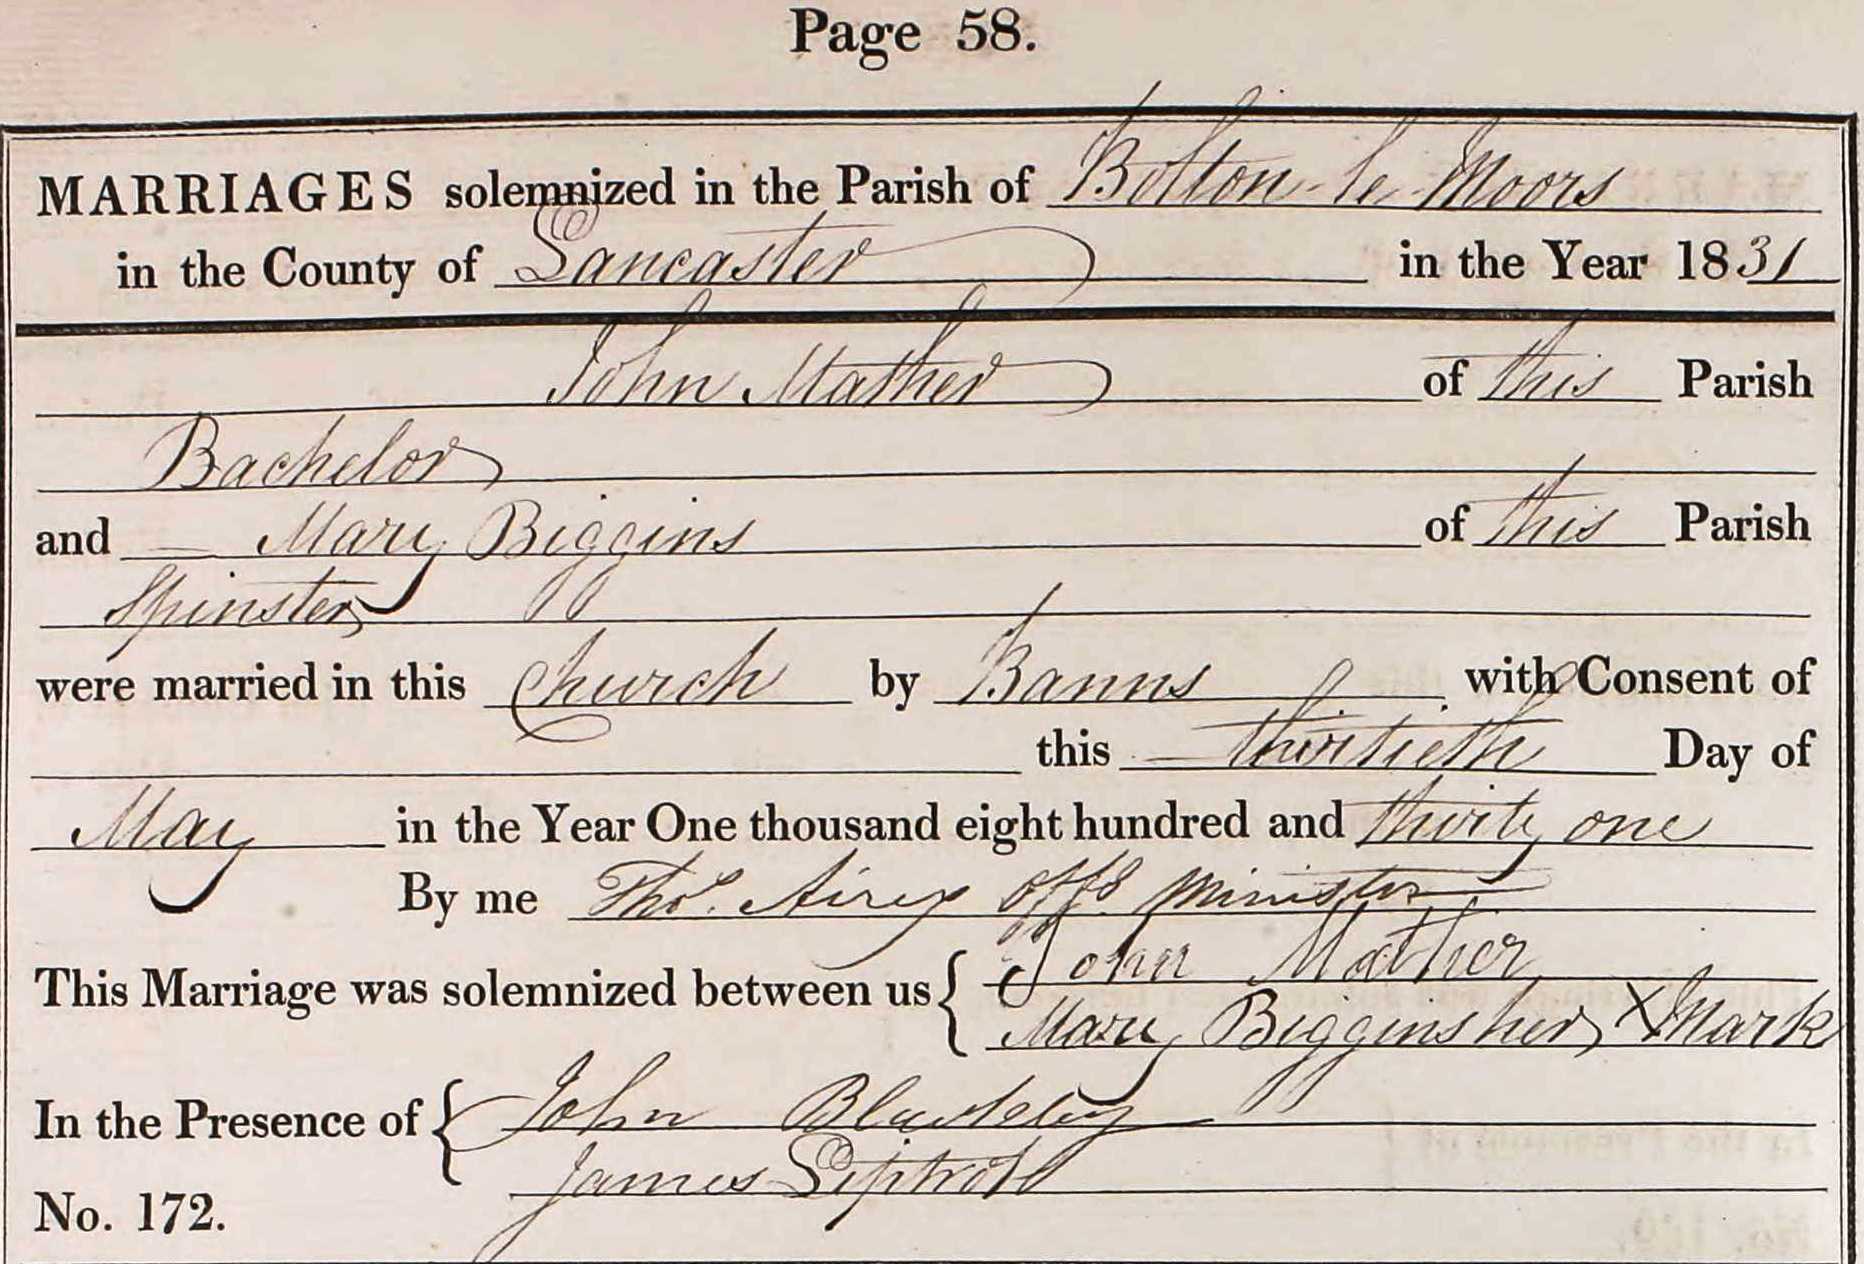 Page 58.
MARRIAGES solemnized in the Parish of Bolton-le-Moors
in the County of Lancaster in the Year 1831
John Mather of this Parish
Bachelor
and Mary Biggins of this Parish
Spinster
were married in this Church by Banns with Consent of
this thirtieth Day of
May in the Year One thousand eight hundred and thirty one
By me Thos. Airey Offg Minister
This Marriage was solemnized between us { John Mather
Mary Biggins her X Mark
In the Presence of { John
James
No. 172.